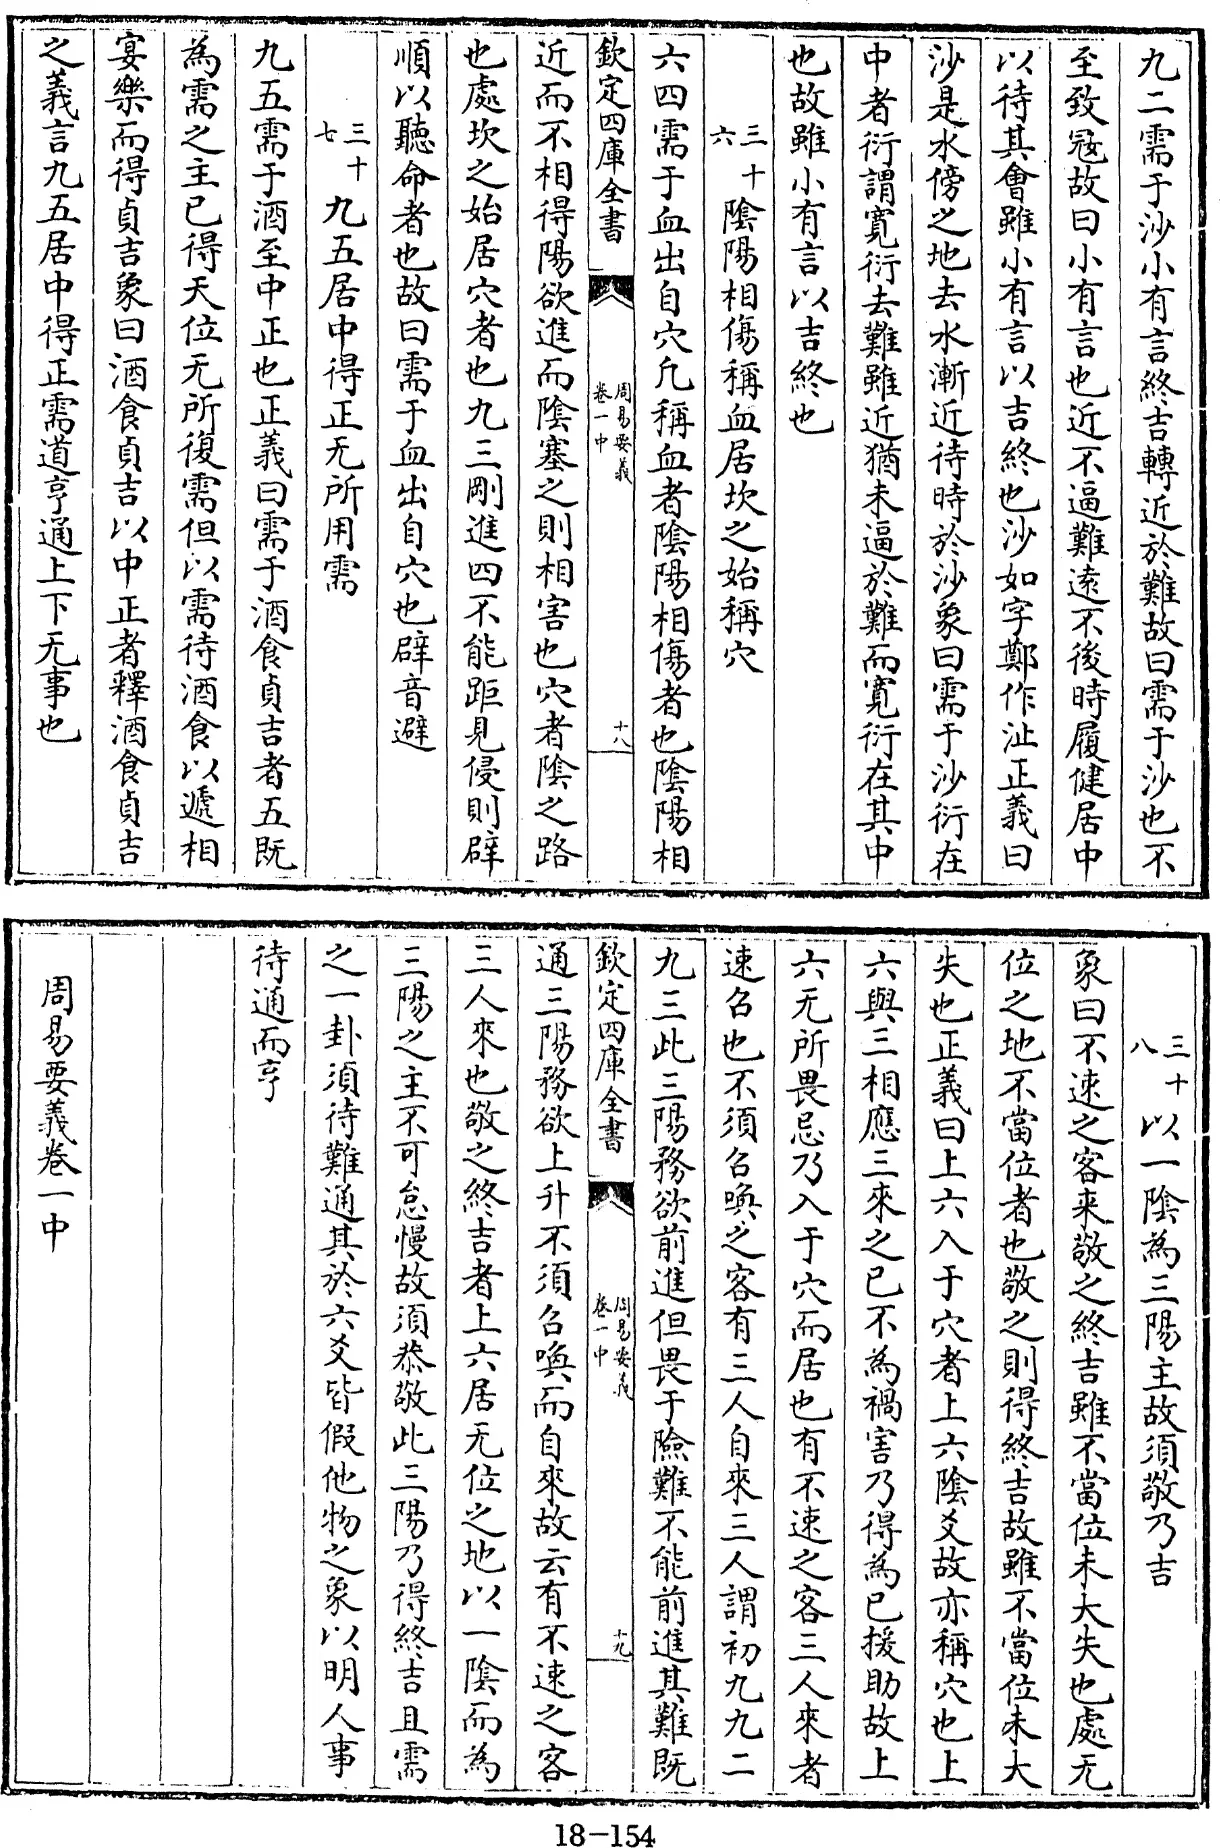 九二需于沙小有言終吉轉近於難故曰需于沙也不
至致冦故曰小有言也近不逼難遠不後時履健居中
以待其會雖小有言以吉終也沙如字鄭作沚正義曰
沙是水傍之地去水漸近待時於沙象曰需于沙衍在
中者衍謂寛衍去難雖近猶未逼於難而寛衍在其中
也故雖小有言以吉終也
三十六 陰陽相傷稱血居坎之始稱穴
六四需于血出自穴凡稱血者陰陽相傷者也陰陽相
欽定四庫全書 周易要義 卷一中 十八
近而不相得陽欲進而陰塞之則相害也穴者陰之路
也處坎之始居穴者也九三剛進四不能距見侵則辟
順以聽命者也故曰需于血出自穴也辟音避
三十七 九五居中得正无所用需
九五需于酒至中正也正義曰需于酒食貞吉者五既
為需之主已得天位无所復需但以需待酒食以遞相
宴樂而得貞吉象曰酒食貞吉以中正者釋酒食貞吉
之義言九五居中得正需道亨通上下无事也
三十八 以一陰為三陽主故須敬乃吉
象曰不速之客来敬之終吉雖不當位未大失也處无
位之地不當位者也敬之則得終吉故雖不當位未大
失也正義曰上六入于穴者上六陰爻故亦稱穴也上
六與三相應三來之已不為禍害乃得為已援助故上
六无所畏忌乃入于穴而居也有不速之客三人來者
速召也不須召喚之客有三人自來三人謂初九九二
九三此三陽務欲前進但畏于險難不能前進其難既
欽定四庫全書 周易要義 卷一中 十九
通三陽務欲上升不須召喚而自來故云有不速之客
三人來也敬之終吉者上六居无位之地以一陰而為
三陽之主不可怠慢故須恭敬此三陽乃得終吉且需
之一卦須待難通其於六爻皆假他物之象以明人事
待通而亨
周易要義卷一中
18-154